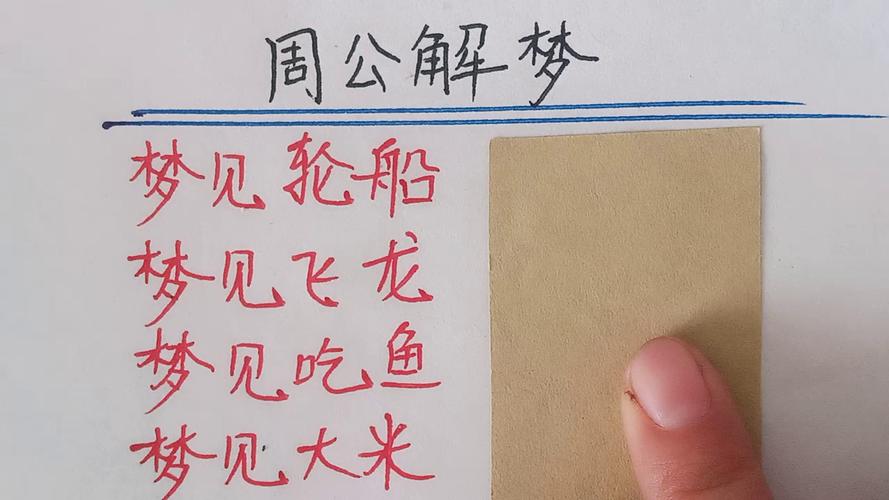 周公解梦
梦见轮船
梦见飞龙
梦见吃鱼
梦见大米